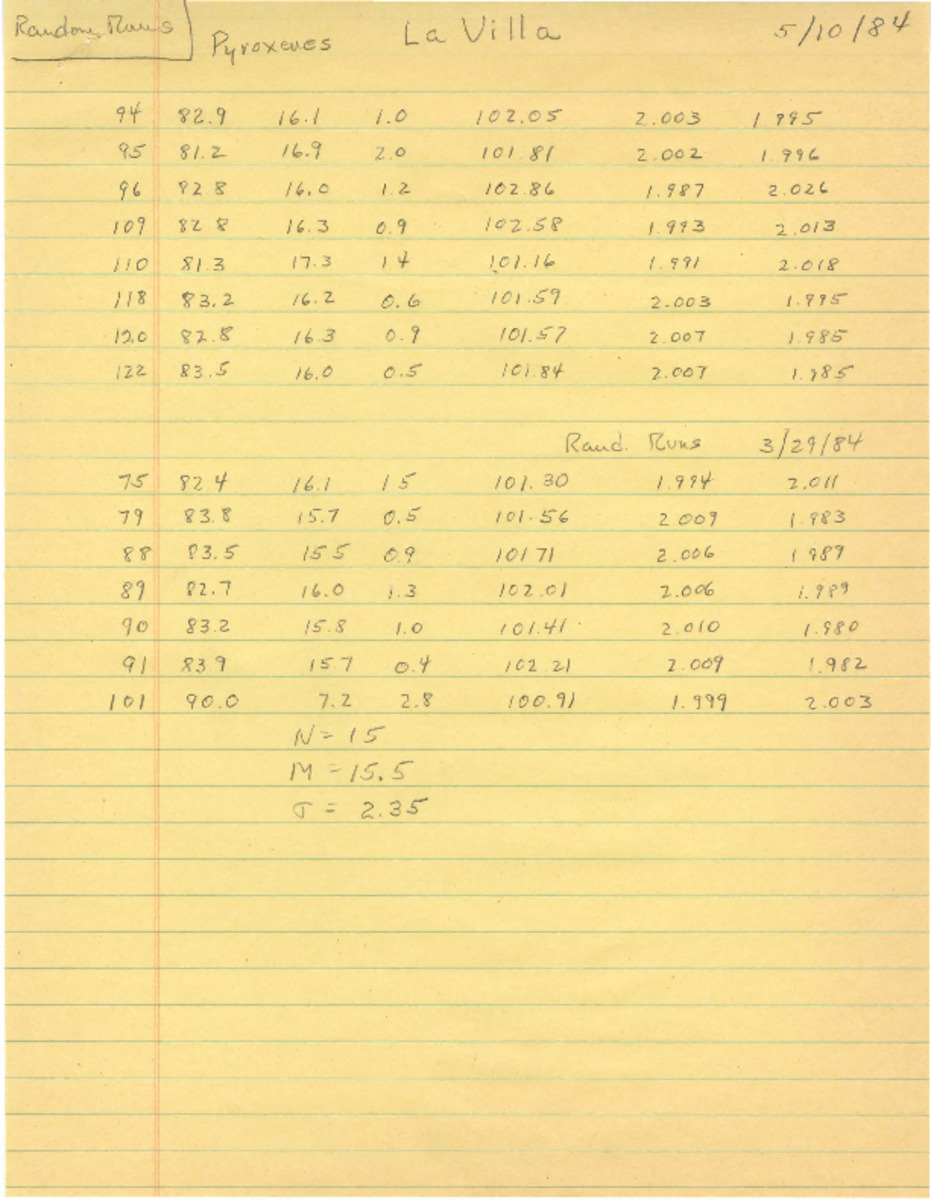 Random Runs Pyroxenes La Villa 5/10/84
94 82.9 16.1 1.0 102.05 2.003 1.995
95 81.2 16.9 2.0 101.81 2.002 1.996
96 82.8 16.0 1.2 102.86 1.987 2.026
109 82 8 16.3 0.9 102.58 1.993 2.013
110 81.3 17.3 1 4 101.16 1.991 2.018
118 83.2 16.2 0.6 101.59 2.003 1.995
120 82.8 16.3 0.9 101.57 2.007 1.985
122 83.5 16.0 0.5 101.84 2.007 1.985
Rand. Runs 3/29/84
75 82 4 16.1 1 5 101.30 1.994 2.011
79 83.8 15.7 0.5 101.56 2.009 1.983
88 83.5 15 5 0.9 101 71 2.006 1 989
89 82.7 16.0 1.3 102.01 2.006 1.989
90 83.2 15.8 1.0 101.41 2.010 1.980
91 83 9 15 7 0.4 102.21 2.009 1.982
101 90.0 7.2 2.8 100.91 1.999 2.003
N = 15
M = 15.5
σ = 2.35